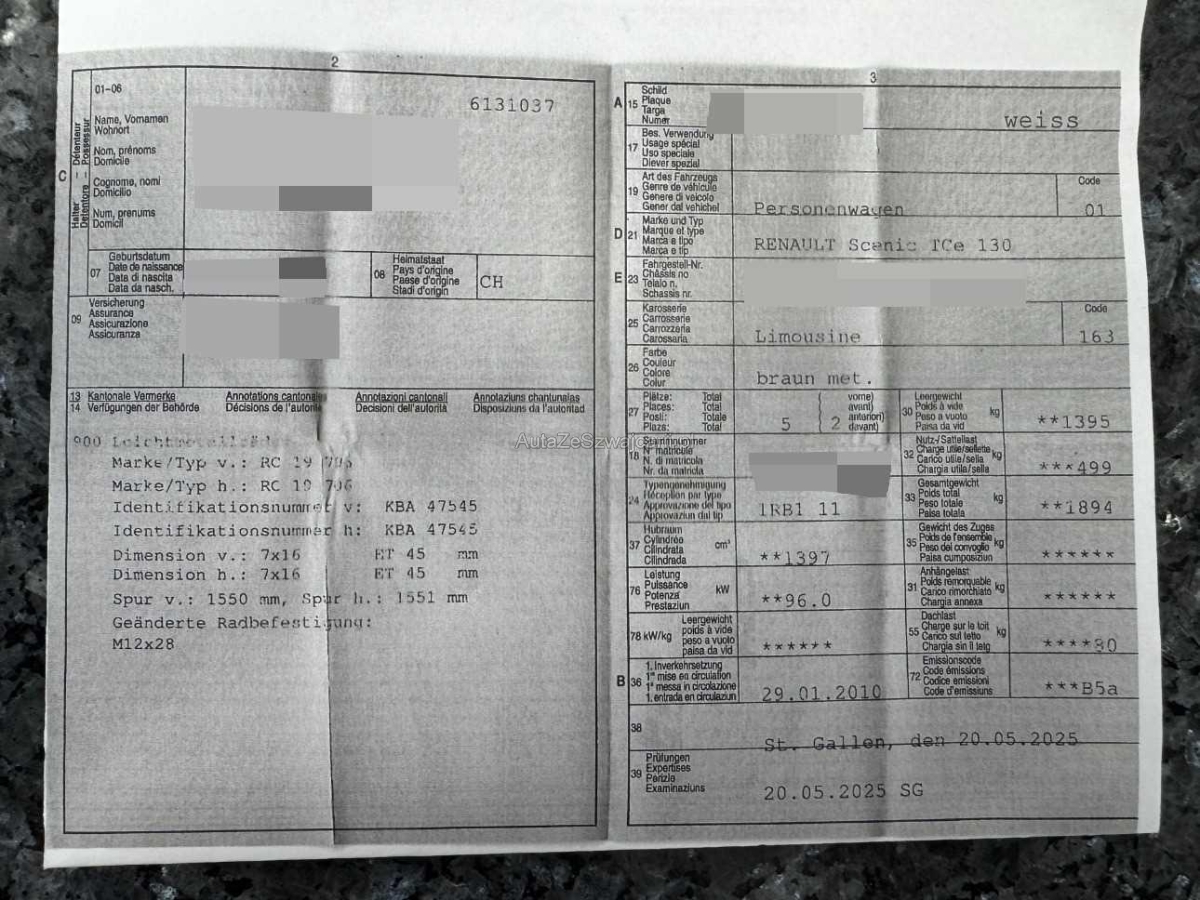 2
01-06
6131037
C
Halter – Détenteur
Detentore – Possessur
Name, Vornamen
Wohnort
Nom, prénoms
Domicile
Cognome, nomi
Domicilio
Num, prenums
Domicil
07
Geburtsdatum
Date de naissance
Data di nascita
Data da nasch.
08
Heimatstaat
Pays d'origine
Paese d'origine
Stadi d'origin
CH
09
Versicherung
Assurance
Assicurazione
Assicuranza
13 Kantonale Vermerke Annotations cantonales Annotazioni cantonali Annotaziuns chantunalas
14 Verfügungen der Behörde Décisions de l'autorité Decisioni dell'autorità Disposiziuns da l'autoritad
900
Marke/Typ v.: RC 19 706
Marke/Typ h.: RC 19 706
Identifikationsnummer v: KBA 47545
Identifikationsnummer h: KBA 47545
Dimension v.: 7x16 ET 45 mm
Dimension h.: 7x16 ET 45 mm
Spur v.: 1550 mm, Spur h.: 1551 mm
Geänderte Radbefestigung:
M12x28
3
A 15
Schild
Plaque
Targa
Numer
weiss
17
Bes. Verwendung
Usage spécial
Uso speciale
Diever spezial
19
Art des Fahrzeugs
Genre de véhicule
Genere di veicolo
Gener dal vehichel
Personenwagen
Code
01
D 21
Marke und Typ
Marque et type
Marca e tipo
Marca e tip
RENAULT Scenic TCe 130
E 23
Fahrgestell-Nr.
Châssis no
Telaio n.
Schassis nr.
25
Karosserie
Carrosserie
Carrozzeria
Carossaria
Limousine
Code
163
26
Farbe
Couleur
Colore
Colur
braun met.
27
Plätze: Total
Places: Total
Posti: Totale
Plazs: Total
5
vorne)
avant)
anteriori)
davant)
2
30
Leergewicht
Poids à vide
Peso a vuoto
Paisa da vid
kg
**1395
18
Stammnummer
N° matricule
N. di matricola
Nr. da matricla
32
Nutz-/Sattellast
Charge utile/sellette
Carico utile/sella
Chargia utila/sella
kg
***499
24
Typengenehmigung
Réception par type
Approvazione del tipo
Approvaziun dal tip
1RB1 11
33
Gesamtgewicht
Poids total
Peso totale
Paisa totala
kg
**1894
37
Hubraum
Cylindrée
Cilindrata
Cilindrada
cm³
**1397
35
Gewicht des Zuges
Poids de l'ensemble
Peso del convoglio
Paisa cumposiziun
kg
******
76
Leistung
Puissance
Potenza
Prestaziun
kW
**96.0
31
Anhängelast
Poids remorquable
Carico rimorchiato
Chargia annexa
kg
******
78 kW/kg
Leergewicht
poids à vide
peso a vuoto
paisa da vid
******
55
Dachlast
Charge sur le toit
Carico sul tetto
Chargia sin il tetg
kg
****80
B 36
1. Inverkehrsetzung
1re mise en circulation
1a messa in circolazione
1. entrada en circulaziun
29.01.2010
72
Emissionscode
Code émissions
Codice emissioni
Code d'emissiuns
***B5a
38
St. Gallen, den 20.05.2025
39
Prüfungen
Expertises
Perizie
Examinaziuns
20.05.2025 SG